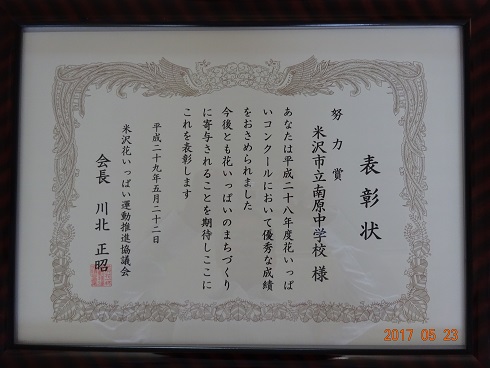 表彰状
努力賞
米沢市立南原中学校 様
あなたは平成二十八年度花いっぱ
いコンクールにおいて優秀な成績
をおさめられました
今後とも花いっぱいのまちづくり
に寄与されることを期待しここに
これを表彰します
平成二十九年五月二十二日
米沢花いっぱい運動推進協議会
会長 川北 正昭
2017 05 23